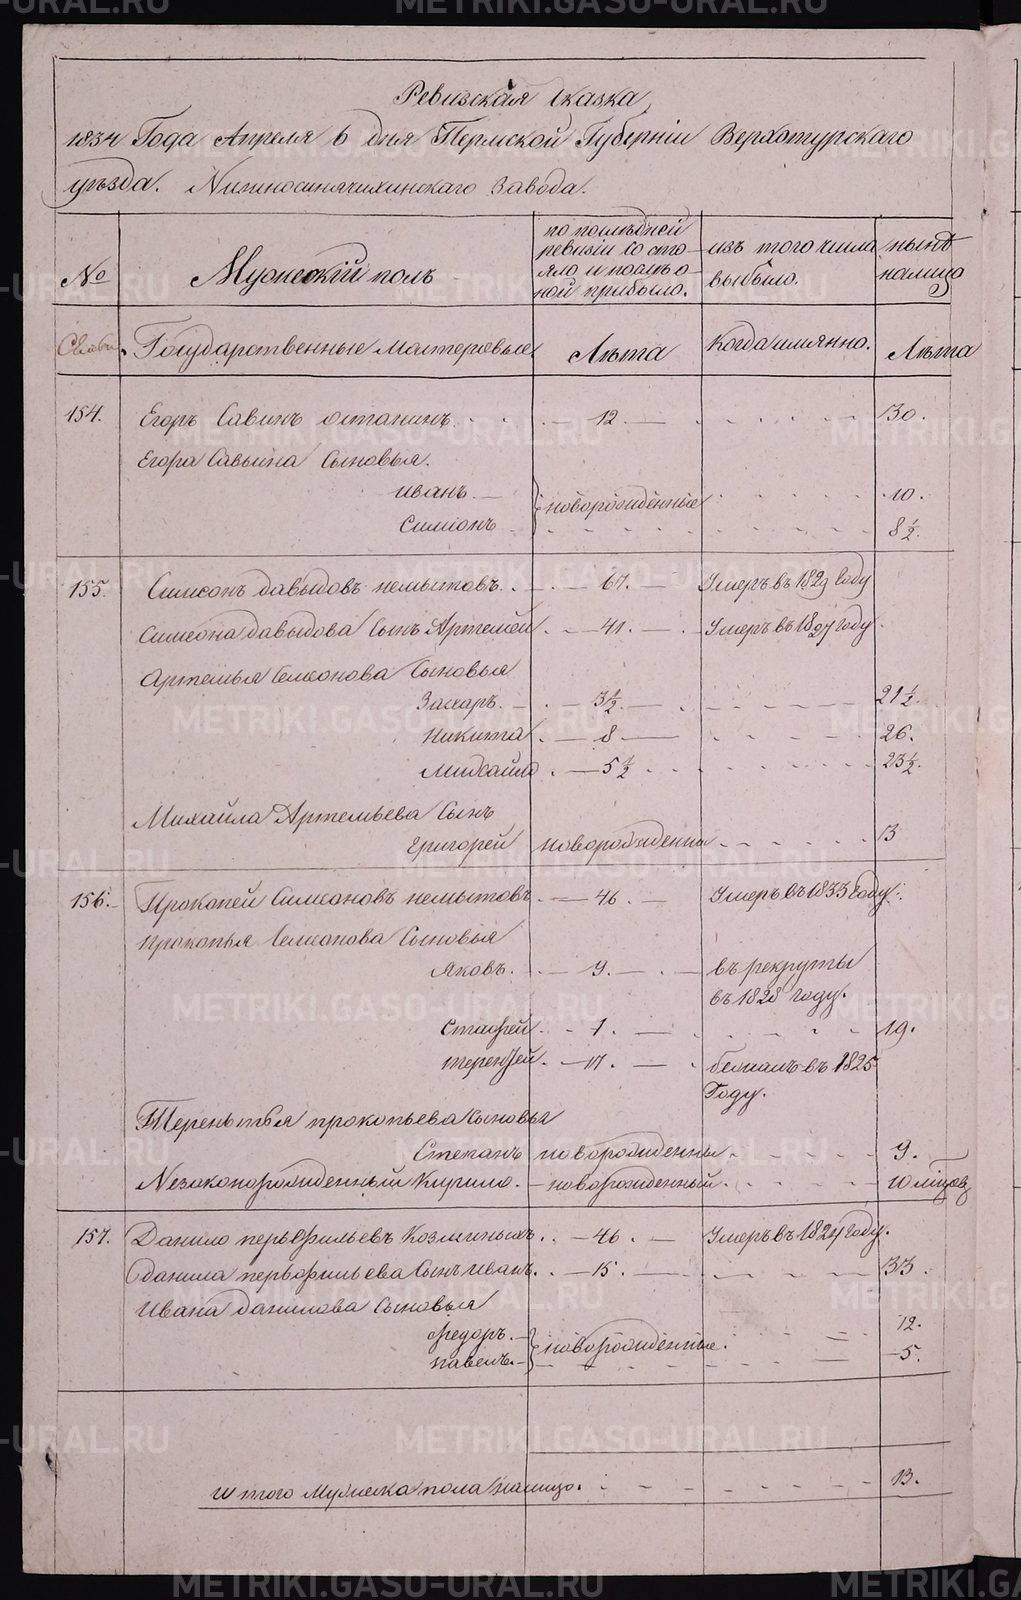 Ревизская Сказка
1834 Года Апреля 6 дня Пермской Губерніи Верхотурскаго
уѣзда. Нижносинячихинскаго Завода.
№ Мужескій полъ по послѣдней ревизіи состояло и послѣ оной прибыло. изъ того числа выбыло. нынѣ налицо
Государственные мастеровые Лѣта Когда имянно. Лѣта
154. Егоръ Савинъ Останинъ 12 30.
Егора Савына Сыновья.
Иванъ новорожденные 10.
Симіонъ 8½.
155. Симеонъ давыдовъ немытовъ. 67. Умеръ въ 1829 Году
Симеона давыдова Сынъ Артемей 41. Умеръ въ 1827 Году.
Артемья Семеонова Сыновья
Захаръ. 3½ 21½.
Никита 8 26.
Михайло 5½ 23½.
Михайла Артемьева Сынъ
Григорей новорожденны 3
156. Прокопей Симеоновъ немытовъ 46. Умеръ въ 1833 Году.
Прокопья Семеонова Сыновья
Яковъ. 9. въ рекруты
въ 1828 Году.
Стафей 1. 19.
терентей 17. бежалъ въ 1825
Году.
Терентья прокопьева Сыновья
Степанъ новорожденны 9.
Незаконорожденный Кирило. новорожденный 10 мѣсяц
157. Данило перьфильевъ Козминыхъ 46. Умеръ въ 1824 году.
Данила перьфильева Сынъ иванъ. 15. 33.
Ивана данилова Сыновья
Федоръ. новорожденные. 12.
павелъ. 5.
Итого Мужеска пола налицо. 13.
METRIKI.GASO-URAL.RU